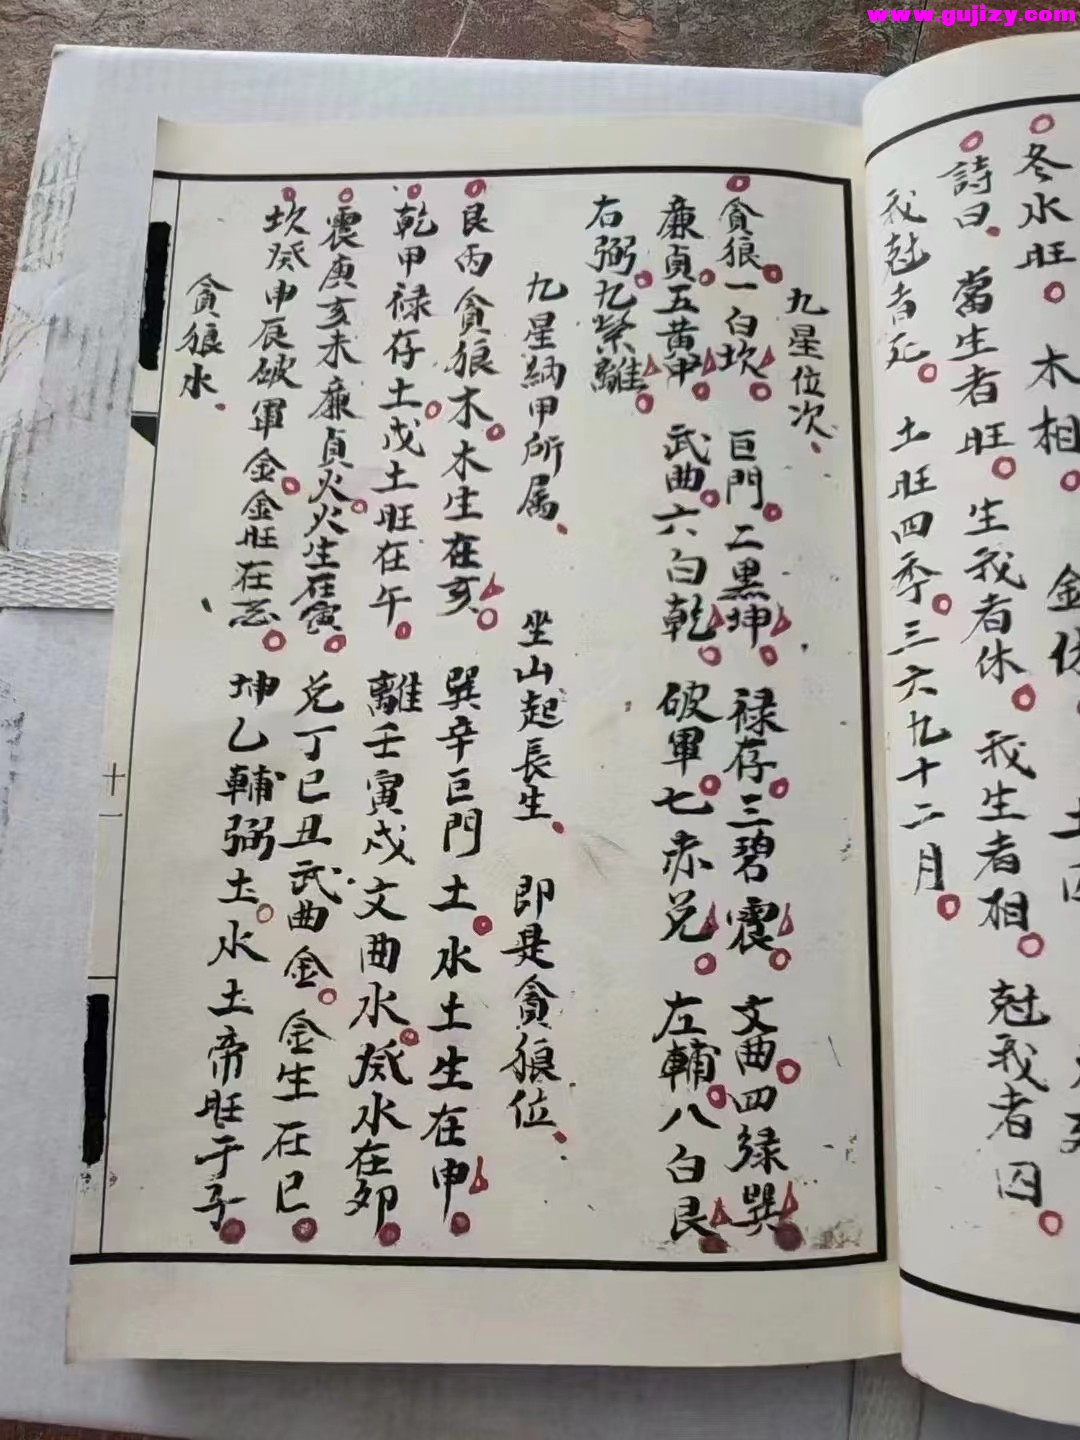 www.gujizy.com
冬水旺 木相 金休 土
詩曰 當生者旺 生我者休 我生者相 尅我者囚
我尅者死 土旺四季三六九十二月
九星位次
貪狼一白坎 巨門二黑坤 禄存三碧震 文曲四緑巽
廉貞五黄中 武曲六白乾 破軍七赤兑 左輔八白艮
右弼九紫離
九星納甲所属 坐山起長生 即是貪狼位
艮丙貪狼木木生在亥 巽辛巨門土水土生在申
乾甲禄存土戊土旺在午 離壬寅戍文曲水癸水在夘
震庚亥未廉貞火火生在寅 兑丁巳丑武曲金金生在巳
坎癸申辰破軍金金旺在 坤乙輔弼土水土帝旺于子
貪狼水
十一